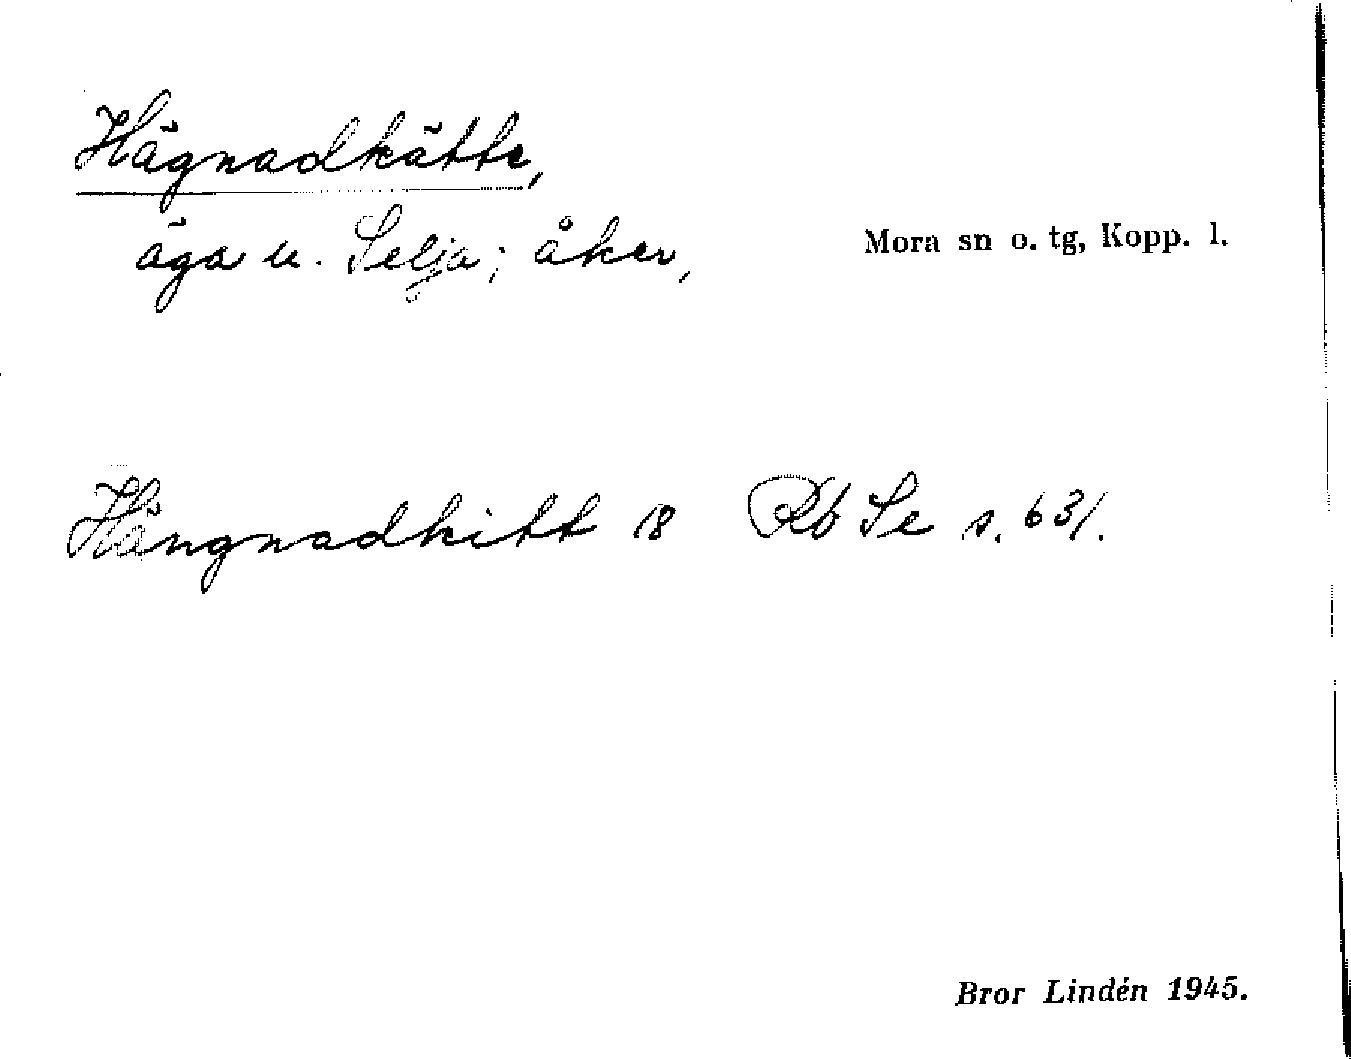 Hägnadkätte,
äga u. Selja; åker,
Mora sn o. tg, Kopp. l.
Hängnadkitt 18 Rb Se s. 631.
Bror Lindén 1945.